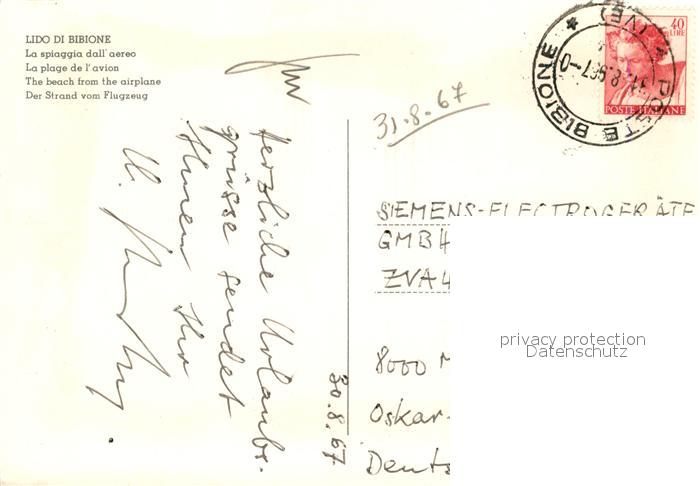 LIDO DI BIBIONE
La spiaggia dall'aereo
La plage de l'avion
The beach from the airplane
Der Strand vom Flugzeug
40
LIRE
POSTE ITALIANE
POSTE BIBIONE * (VE) *
31.8.67
SIEMENS-ELECTROGERÄTE
GMBH
ZVA4
8000 M
Oskar-
Deuts
30.8.67
Herzliche Urlaubs-
grüsse sendet
Ihnen Ihr
privacy protection
Datenschutz